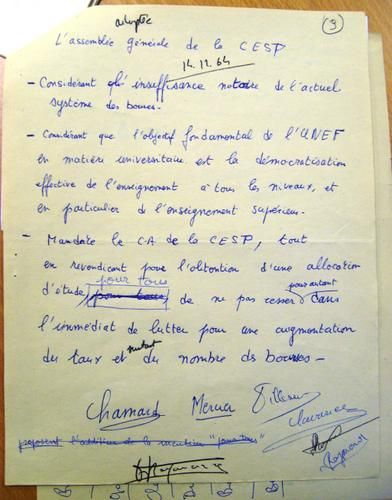 adoptée
(3)
L'assemblée générale de la CESP
14.12.64
- Considérant insuffisance notoire de l'actuel
système des bourses.
- Considérant que l'objectif fondamental de l'UNEF
en matière universitaire est la démocratisation
effective de l'enseignement à tous les niveaux, et
en particulier de l'enseignement supérieur.
- Mandate le CA de la CESP, tout
en revendiquant pour l'obtention d'une allocation
pour tous
pour autant
d'étude pour tous de ne pas cesser dans
l'immédiat de lutter pour une augmentation
du taux et surtout du nombre de bourses -
Chamard Mercier
proposent l'addition de la mention "pour tous"